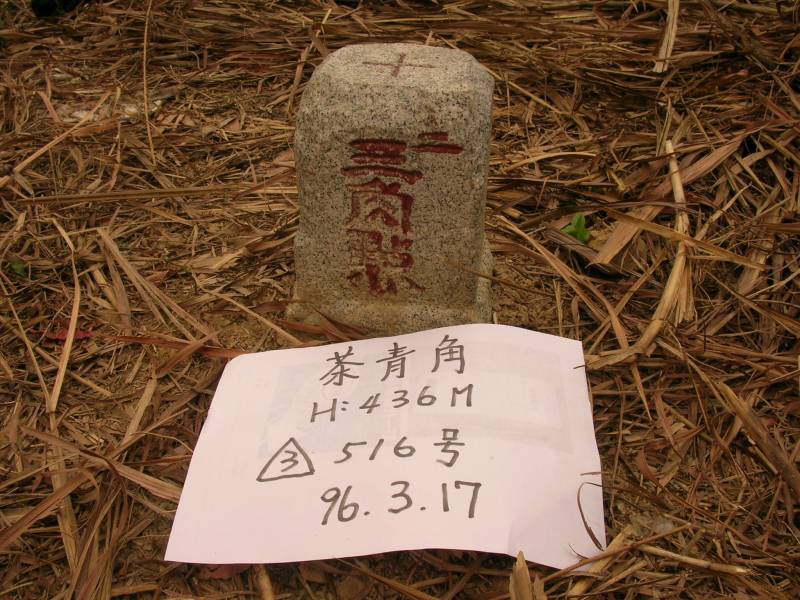 二
三角點
茶青角
H: 436M
3 516号
96.3.17